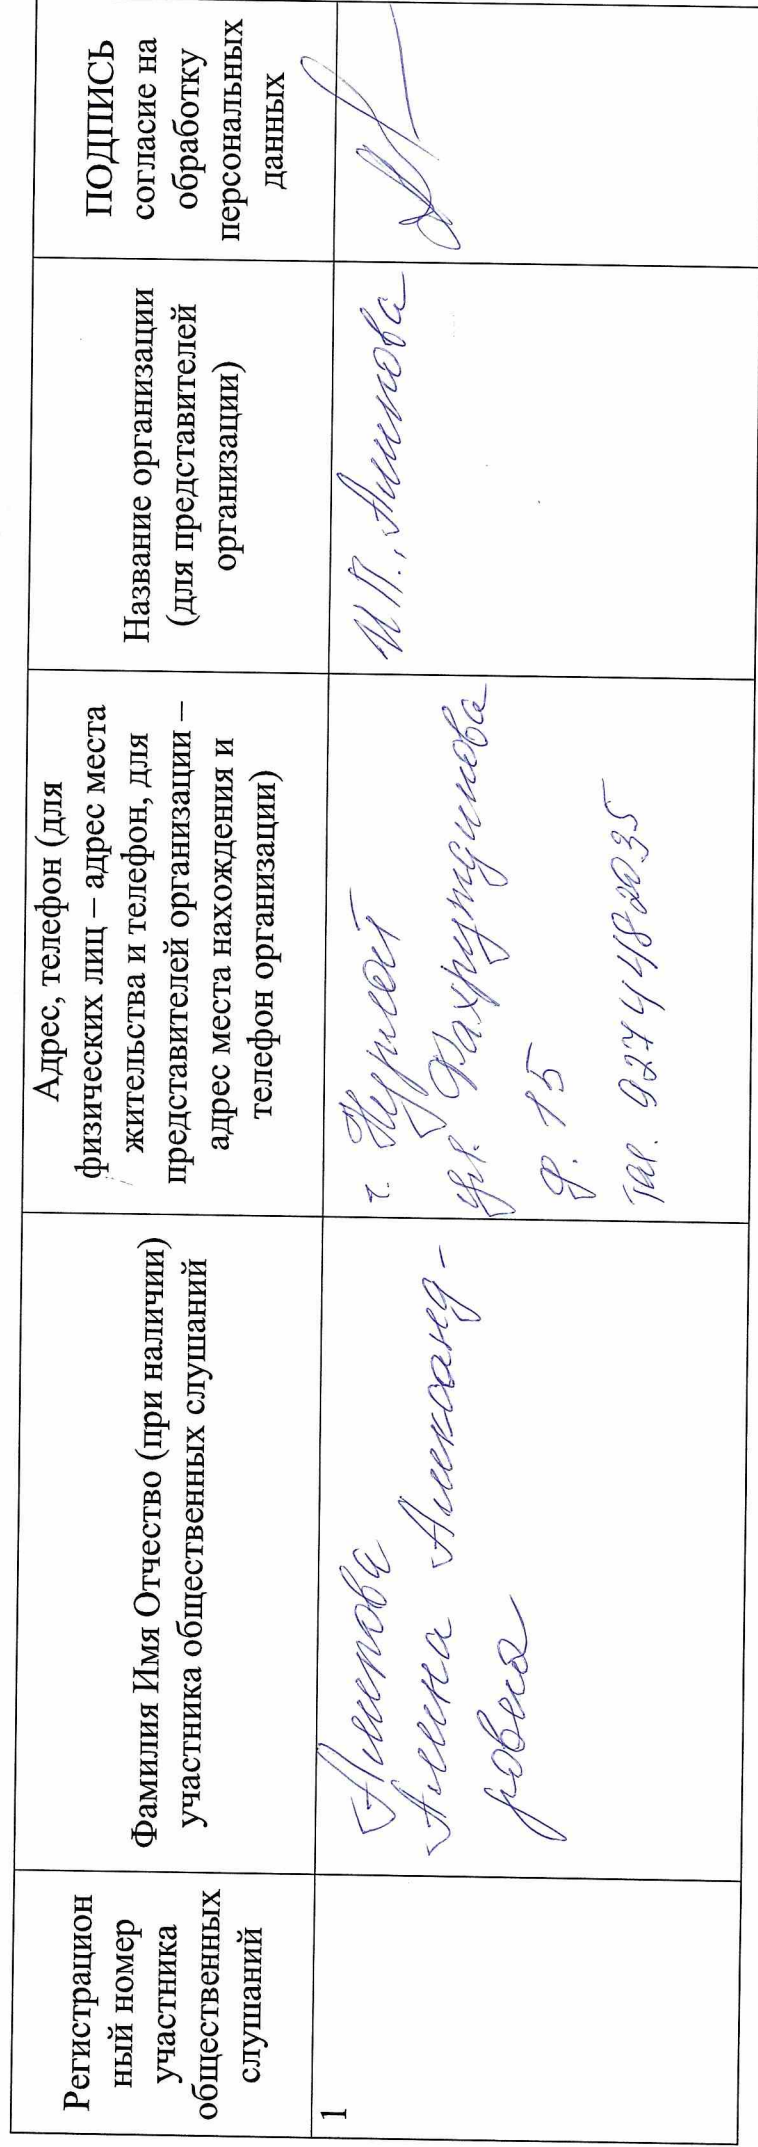 Регистрацион
ный номер
участника
общественных
слушаний
Фамилия Имя Отчество (при наличии)
участника общественных слушаний
Адрес, телефон (для
физических лиц – адрес места
жительства и телефон, для
представителей организации –
адрес места нахождения и
телефон организации)
Название организации
(для представителей
организации)
ПОДПИСЬ
согласие на
обработку
персональных
данных
1
Алипова
Алина Александ-
ровна
г. Нурлат
ул. Фахрутдинова
д. 15
Тел. 9274482035
ИП., Алипова